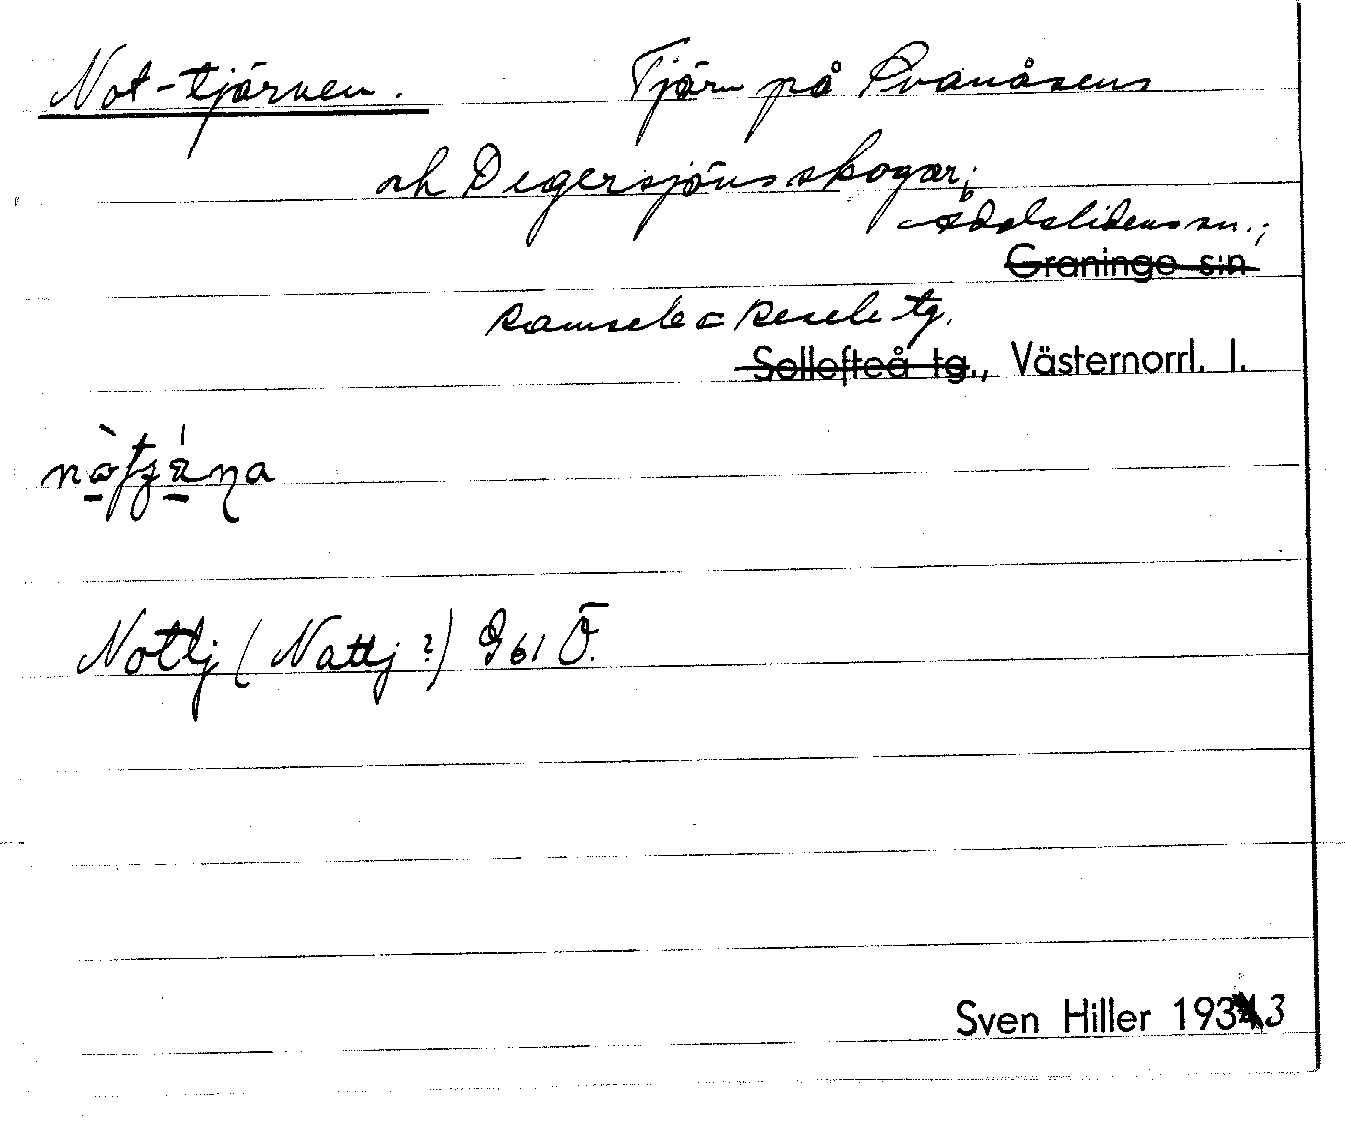 Not-tjärnen. Tjärn på Svanåsens
och Degersjöns skogar;
Ådalslidens sn.;
Graninge s:n
Ramsele o Resele tg.
Sollefteå tg., Västernorrl. l.
Nottj (Nattj ?) G 61 Ö.
Sven Hiller 1933